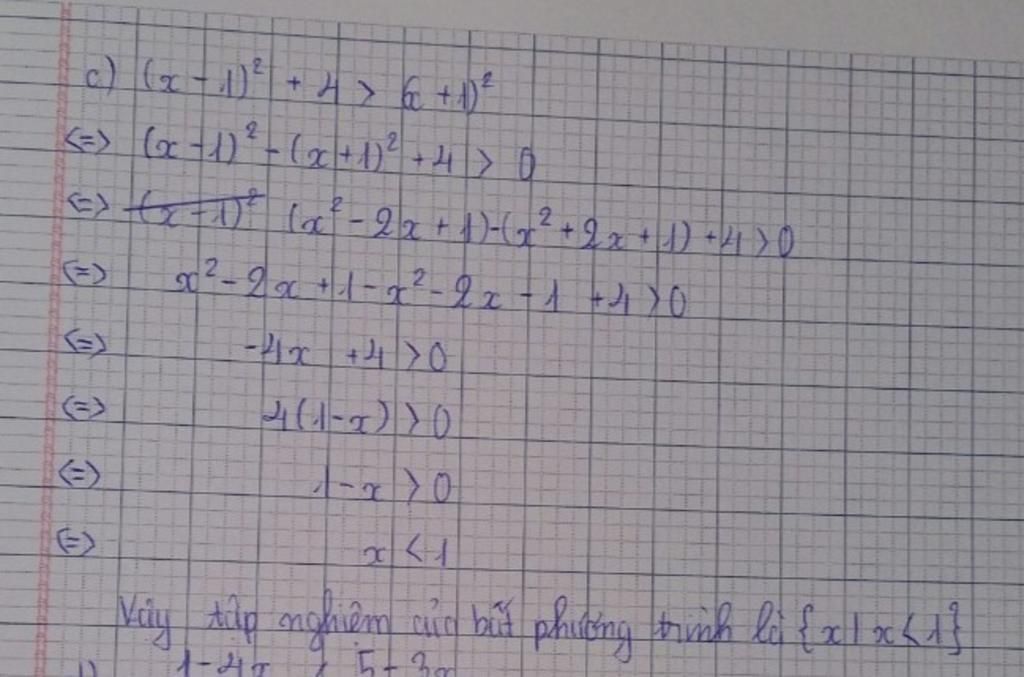 c) (x - 1)² + 4 > (x + 1)²
<=> (x - 1)² - (x + 1)² + 4 > 0
<=> (x - 1)² (x² - 2x + 1) - (x² + 2x + 1) + 4 > 0
<=> x² - 2x + 1 - x² - 2x - 1 + 4 > 0
<=> -4x + 4 > 0
<=> 4(1 - x) > 0
<=> 1 - x > 0
<=> x < 1
Vậy tập nghiệm của bất phương trình là {x | x < 1}